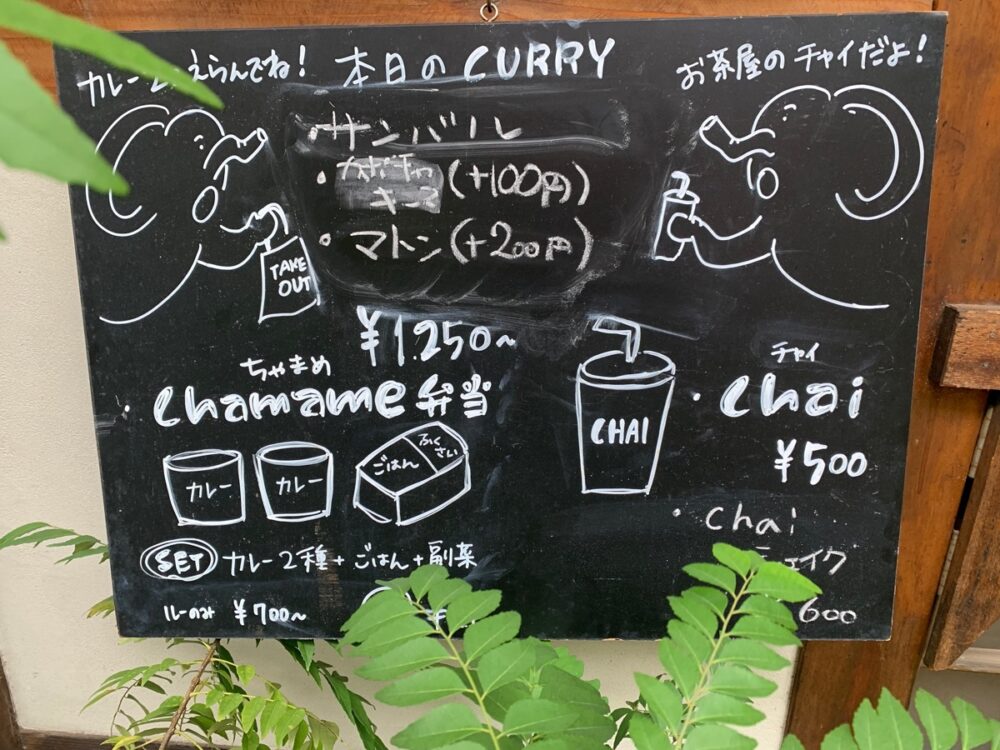 カレー2 えらんでね!
本日のCURRY
お茶屋のチャイだよ!
・サンバール
・カボチャ
キーマ (+100円)
・マトン(+200円)
TAKE
OUT
¥1.250~
ちゃまめ
・chamame弁当
カレー
カレー
ごはん
ふく
さい
SET カレー2種+ごはん+副菜
ルーのみ ¥700~
CHAI
チャイ
・chai
¥500
・chai
シェイク
600